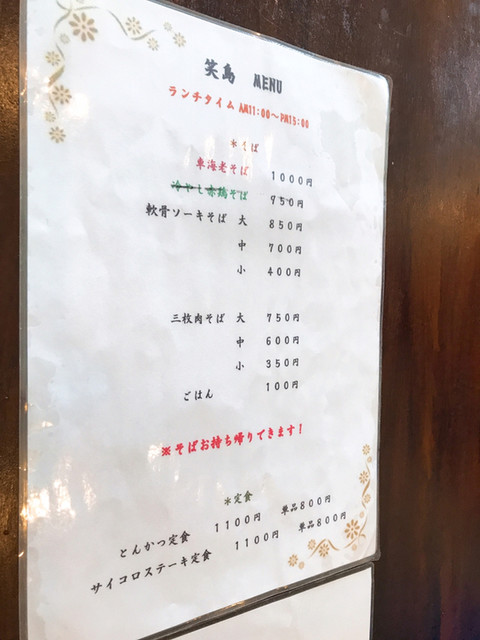 笑島 MENU
ランチタイム AM11:00～PM15:00
＊そば
車海老そば 1000円
冷やし赤鶏そば 950円
軟骨ソーキそば 大 850円
中 700円
小 400円
三枚肉そば 大 750円
中 600円
小 350円
ごはん 100円
※そばお持ち帰りできます！
＊定食
とんかつ定食 1100円 単品800円
サイコロステーキ定食 1100円 単品800円